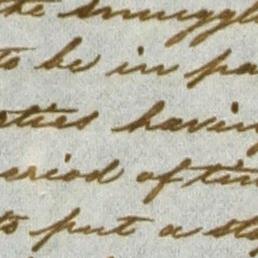 the smuggl
to be in pa
rties having
eriod of tim
to put a sto